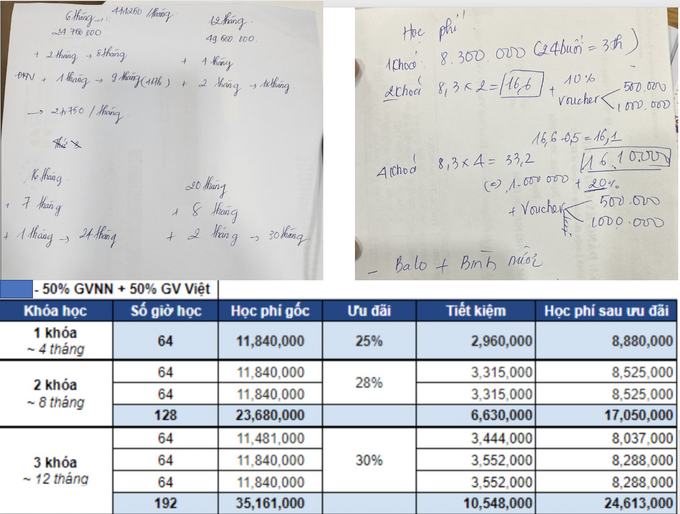 6 tháng
12 tháng
24.760.000
49.600.000
+ 2 tháng → 8 tháng
+ 4 tháng
+ 1 tháng → 9 tháng
+ 2 tháng
→ 2.750 / tháng
16 tháng
20 tháng
+ 7 tháng
+ 8 tháng
+ 1 tháng → 24 tháng
+ 2 tháng → 30 tháng
Học phí
1 khoá 8.300.000 (24 buổi = 3 th)
2 khoá 8,3 x 2 = 16,6 + 10%
voucher 500.000
1000.000
16,6 - 0,5 = 16,1
4 khoá 8,3 x 4 = 33,2
16.10.000
1.000.000 + 20%
+ Voucher 500.000
1000.000
- Balo + Bình nước
- 50% GVNN + 50% GV Việt
Khóa học Số giờ học Học phí gốc Ưu đãi Tiết kiệm Học phí sau ưu đãi
1 khóa ~ 4 tháng 64 11,840,000 25% 2,960,000 8,880,000
2 khóa ~ 8 tháng 64 11,840,000 28% 3,315,000 8,525,000
64 11,840,000 3,315,000 8,525,000
128 23,680,000 6,630,000 17,050,000
3 khóa ~ 12 tháng 64 11,481,000 30% 3,444,000 8,037,000
64 11,840,000 3,552,000 8,288,000
64 11,840,000 3,552,000 8,288,000
192 35,161,000 10,548,000 24,613,000